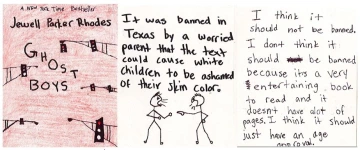 A NEW YORK TIMES Bestseller
Jewell Parker Rhodes
GHOST
BOYS
It was banned in
Texas by a worried
parent that the text
could cause white
children to be ashamed
of their skin color.
I think it
should not be banned.
I dont think it
should be banned
because its a very
entertaining book
to read and it
doesnt have alot of
pages. I think it should
just have an age
approval.